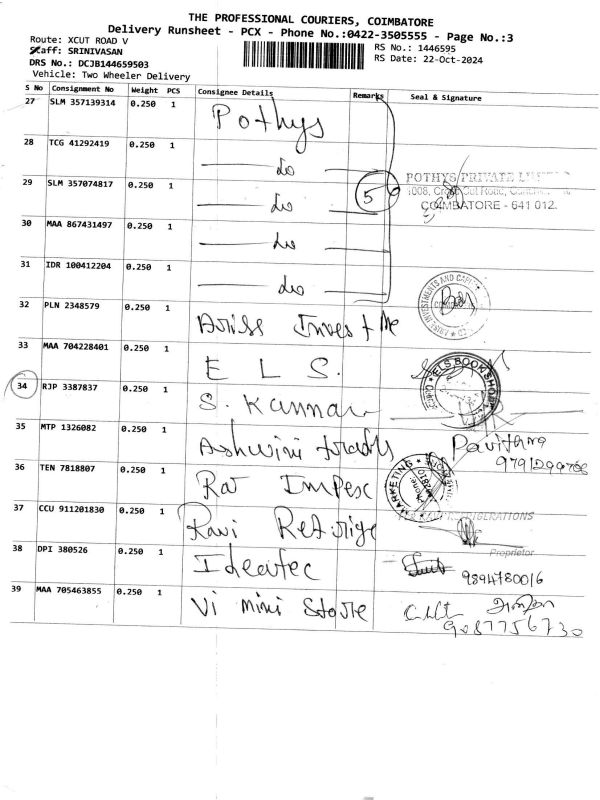 THE PROFESSIONAL COURIERS, COIMBATORE
Delivery Runsheet - PCX - Phone No.:0422-3505555 - Page No.:3
Route: XCUT ROAD V
RS No.: 1446595
Staff: SRINIVASAN
RS Date: 22-Oct-2024
DRS No.: DCJB144659503
Vehicle: Two Wheeler Delivery
S No Consignment No Weight PCS Consignee Details Remarks Seal & Signature
27 SLM 357139314 0.250 1 Pothys
28 TCG 41292419 0.250 1 do
29 SLM 357074817 0.250 1 do 5 POTHYS PRIVATE
COIMBATORE - 641 012.
30 MAA 867431497 0.250 1 do
31 IDR 100412204 0.250 1 do
32 PLN 2348579 0.250 1 Ariss Invest me
33 MAA 704228401 0.250 1 E L S. ELS BOOK SHOP
34 RJP 3387837 0.250 1 S. Kannan
35 MTP 1326082 0.250 1 Ashwini Pavithra
36 TEN 7818807 0.250 1 Raj Impex MARKETING
37 CCU 911201830 0.250 1 Ravi Refrige
Proprietor
38 DPI 380526 0.250 1 Ideatec
39 MAA 705463855 0.250 1 Vi mini Store
9087756730